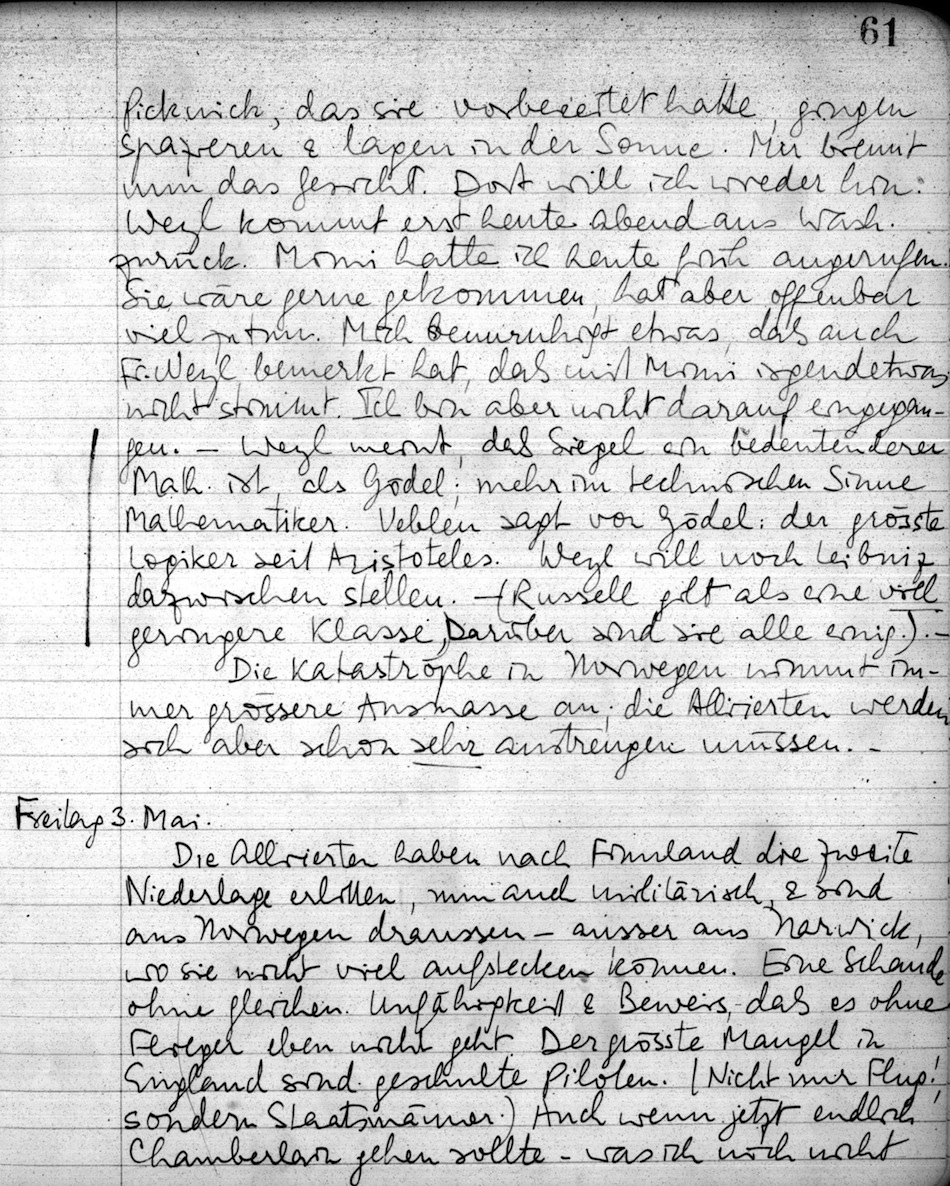 61
Picknick, das sie vorbereitet hatte, gingen
spazieren & lagen in der Sonne. Mir brennt
nun das Gesicht. Dort will ich wieder hin.
Weyl kommt erst heute abend aus Wash.
zurück. Momi hatte ich heute früh angerufen.
Sie wäre gerne gekommen, hat aber offenbar
viel zu tun. Mich beunruhigt etwas, dass auch
Fr. Weyl bemerkt hat, dass mit Momi irgendetwas
nicht stimmt. Ich bin aber nicht darauf eingegan-
gen. – Weyl meint, dass Siegel ein bedeutenderer
Math. ist, als Gödel; mehr im technischen Sinne
Mathematiker. Veblen sagt von Gödel: der grösste
Logiker seit Aristoteles. Weyl will noch Leibniz
dazwischen stellen. – (Russell gilt als eine viel
geringere Klasse, Darüber sind sie alle einig.). –
Die Katastrophe in Norwegen nimmt im-
mer grössere Ausmasse an; die Alliierten werden
sich aber schon sehr anstrengen müssen. –
Freitag 3. Mai.
Die Alliierten haben nach Finnland die zweite
Niederlage erlitten, nun auch militärisch, & sind
aus Norwegen draussen – ausser aus Narwick,
wo sie nicht viel aufstecken können. Eine Schande
ohne gleichen. Unfähigkeit & Beweis, dass es ohne
Flieger eben nicht geht. Der grösste Mangel in
England sind geschulte Piloten. (Nicht nur Flug!
sondern Staatsmänner.) Auch wenn jetzt endlich
Chamberlain gehen sollte – was ich noch nicht